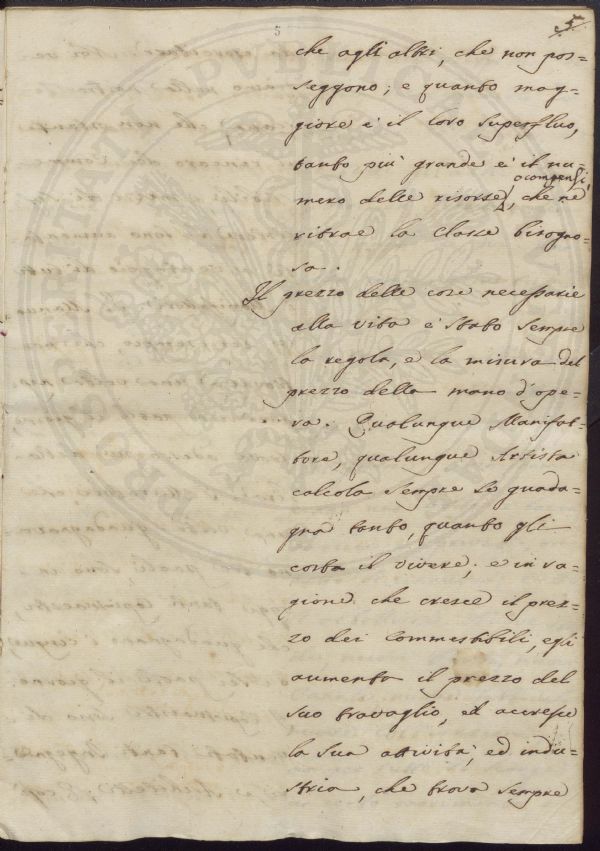 5
5
che agli altri, che non pos-
seggono; e quanto mag-
giore è il loro superfluo,
tanto più grande è il nu-
ocompensi,
mero delle risorse, che ne
ritrae la classe bisogno-
sa.
Il prezzo delle cose necessarie
alla vita è stato sempre
la regola, e la misura del
prezzo della mano d'ope-
ra. Qualunque Manifat-
tore, qualunque Artista
calcola sempre se guada-
gna tanto, quanto gli
costa il vivere; e in ra-
gione che cresce il prez-
zo dei commestibili, egli
aumenta il prezzo del
suo travaglio, ed accresce
la sua attività, ed indu-
stria, che trova sempre